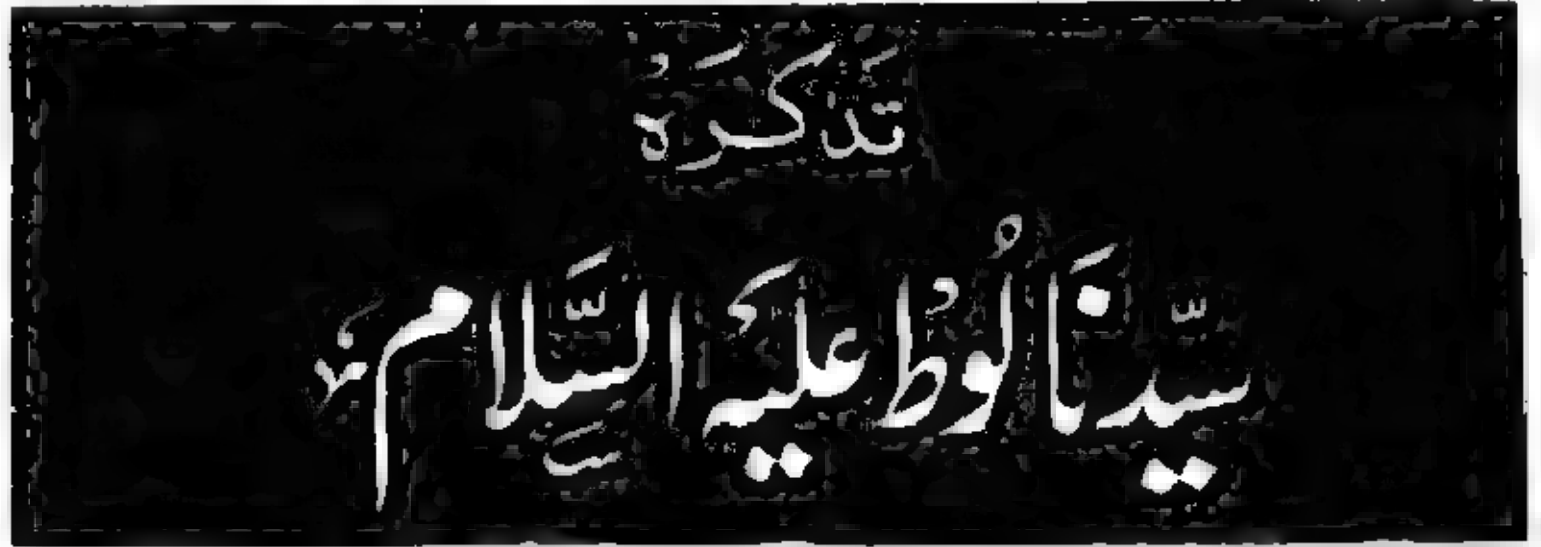 تَذکرَہُ
سیّدنَا لُوطؑ عَلیہ السَّلام